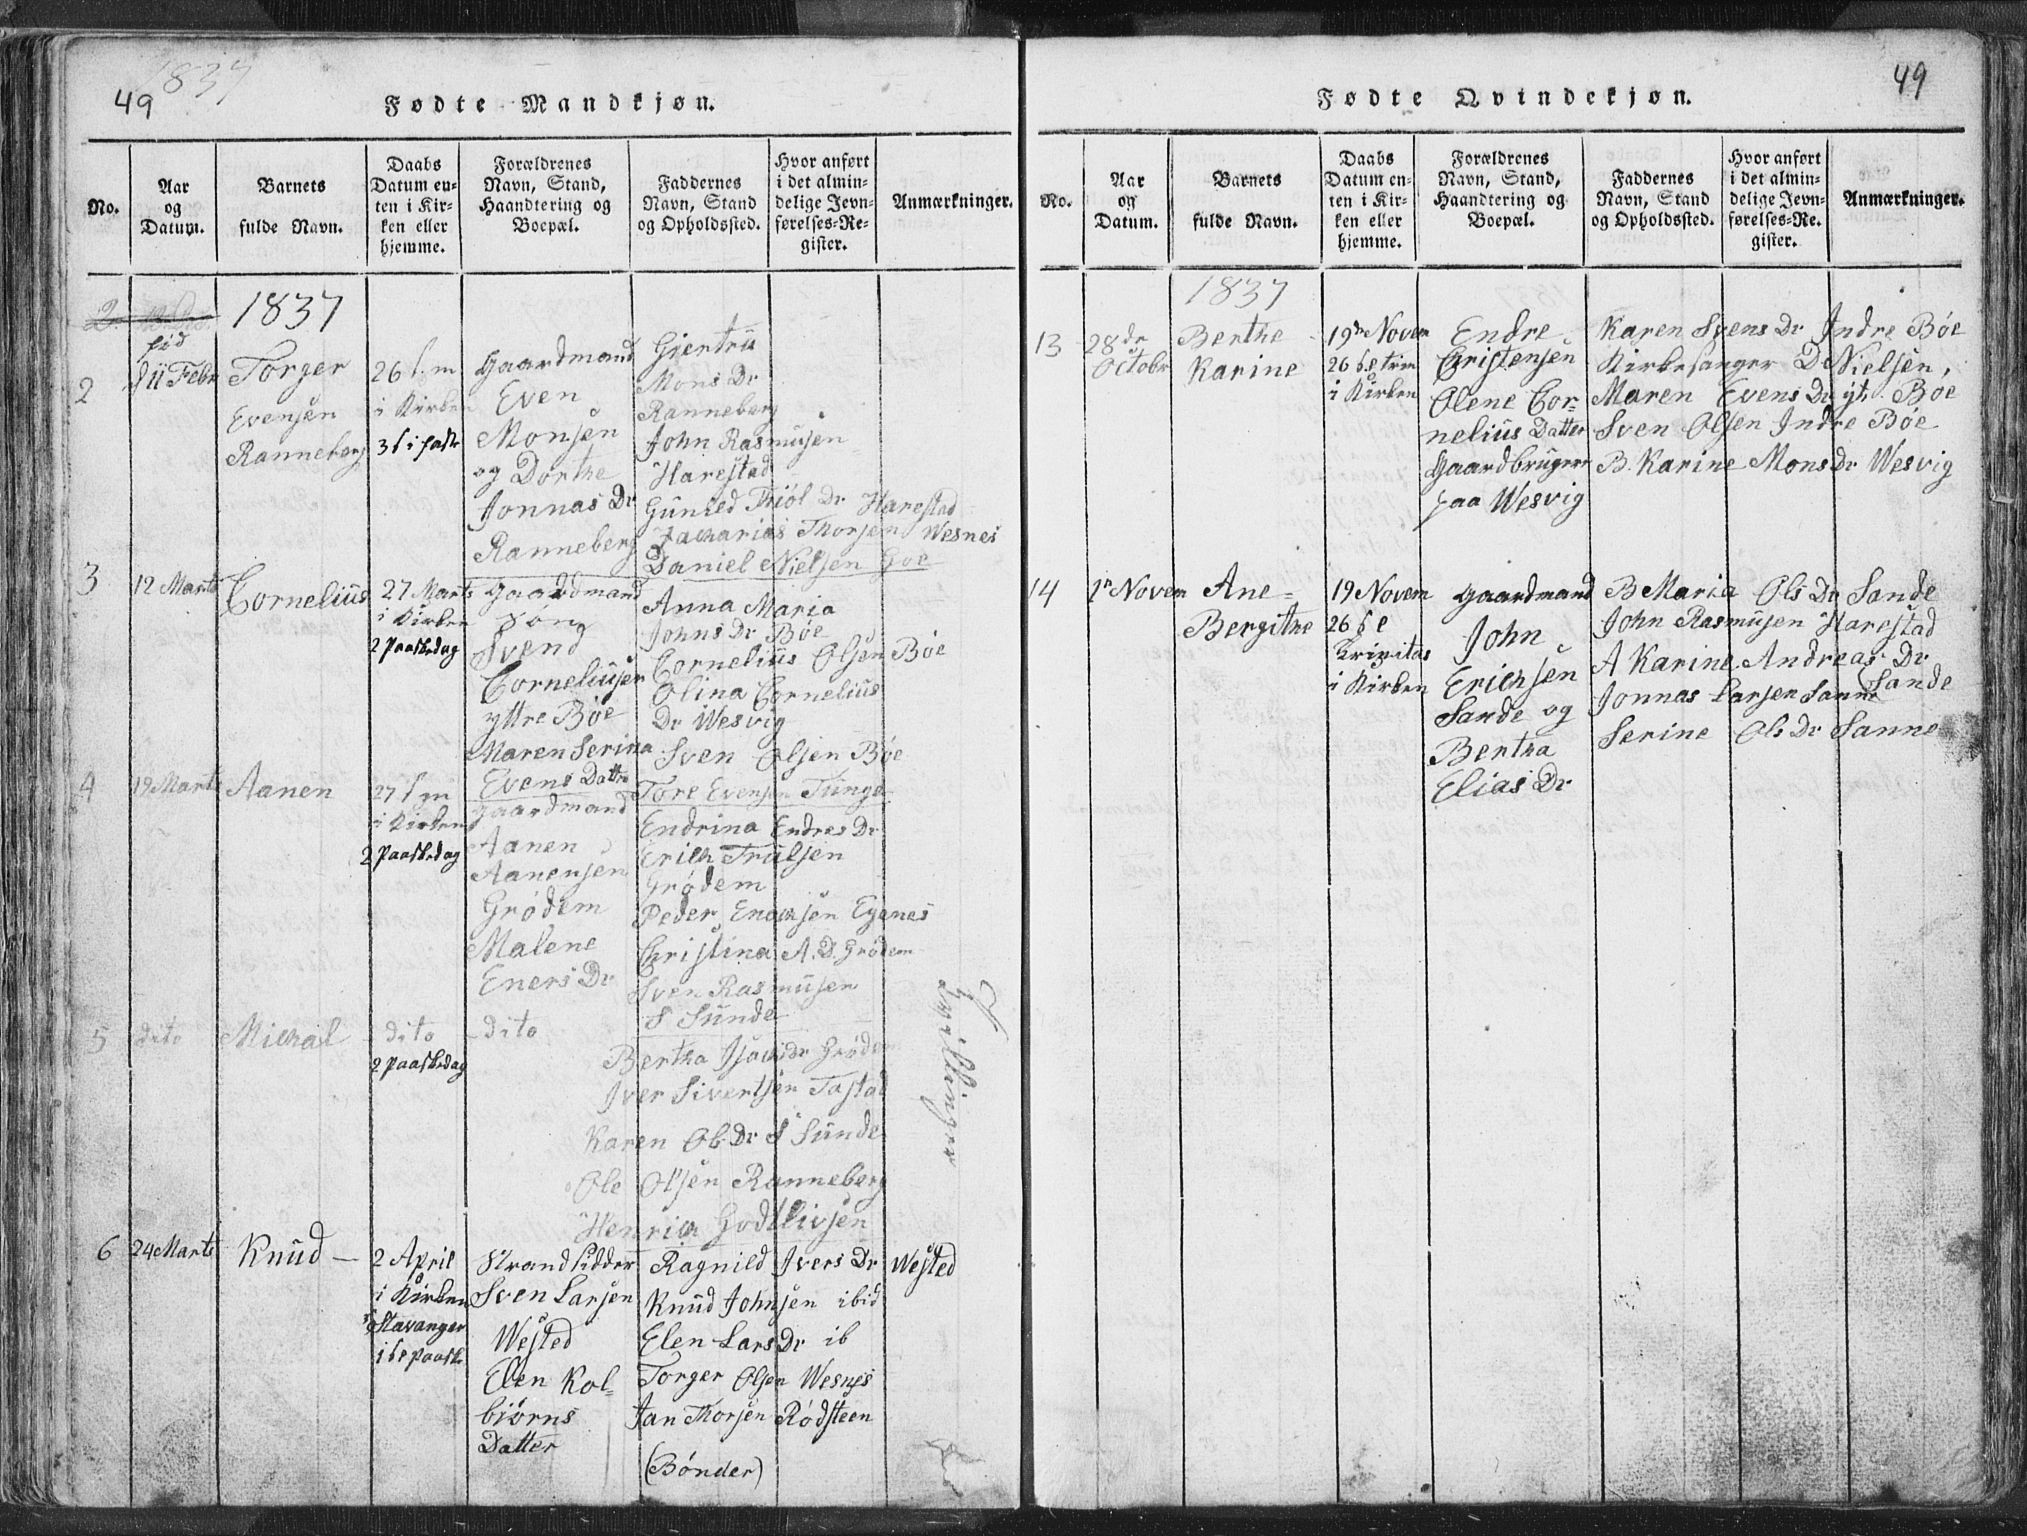 1837
49
Fødte Mandkjøn.
No.
Aar
og
Datum.
Barnets
fulde Navn.
Daabs
Datum en-
ten i Kir-
ken eller
hjemme.
Forældrenes
Navn, Stand,
Haandtering og
Boepæl.
Faddernes
Navn, Stand
og Opholdssted.
Hvor anført
i det almin-
delige Jevn-
førelses-Re-
gister.
Anmærkninger.
1837
2
fød
d 11 Febr
Torger
Evensen
Ranneberg
26 f. m
i Kirken
3 s i faste
Gaardmand
Even
Monsen
og Dorthe
Jonnas Dr
Ranneberg
Giertru
Mons Dr
Ranneberg
John Rasmusen
Harestad
Guniled Thiøl Dr Harestad
Zacharias Thorsen Wesnes
Daniel Nielsen Goe
3
12 Marts
Cornelius
27 Marts
i Kirken
2 Paaskedag
Gaardmand
Søng
Svend
Corneliusen
yttre Bøe
Maren Serina
Evens Datter
Anna Maria
Johns Dr Bøe
Cornelius Olsen Bøe
Olina Cornelius
Dr Wesvig
Sven Olsen Bøe
4
19 Marts
Aanen
27 f m
i Kirken
2 Paaskedag
Gaardmand
Aanen
Aanensen
Grødem
Malene
Eners Dr
Tore Evensen Tunge
Endrina Endres Dr
Erich Trulsen
Grødem
Peder Enochsen Egenes
Christina A. D. Grødem
Sven Rasmusen
S Sunde
5
dito
Michail
dito
2 Paaskedag
dito
Bertha Isachs Dr Grødem
Iver Sivertsen Tastad
Karen Ols Dr S Sunde
Ole Olsen Ranneberg
Henrich Godtlivsen
Tvillinger
6
24 Marts
Knud
2 April
i Kirken
Stavanger
1 s e Paaske
Strandsidder
Sven Larsen
Wested
Elen Kol-
biørns
Datter
Ragnild Ivers Dr Wested
Knud Johnsen ibid
Elen Lars Dr ib
Torger Olsen Wesnes
Jan Thorsen Rødsteen
(Bønder)
49
Fødte Qvindekjøn.
No.
Aar
og
Datum.
Barnets
fulde Navn.
Daabs
Datum en-
ten i Kir-
ken eller
hjemme.
Forældrenes
Navn, Stand,
Haandtering og
Boepæl.
Faddernes
Navn, Stand
og Opholdssted.
Hvor anført
i det almin-
delige Jevn-
førelses-Re-
gister.
Anmærkninger.
1837
13
28 de
Octobr
Berthe
Karine
19de Novem
26 s e trin
i Kirken
Endre
Christensen
Olene Cor-
nelius Datter
Gaardbruger
paa Wesvig
Karen Svens Dr Indre Bøe
Kirkesanger D Nielsen,
Maren Evens Dr yt. Bøe
Sven Olsen Indre Bøe
B. Karine Mons Dr Wesvig
14
1n Novem
Ane
Bergithe
19 Novem
26 s e
i Kirken
Gaardmand
John
Erichsen
Sande og
Bertha
Elias Dr
B Maria Ols Dr Sande
John Rasmusen Harestad
A Karine Andreas Dr
Sande
Jonnas Larsen Sanne
Serine Ols Dr Sanne